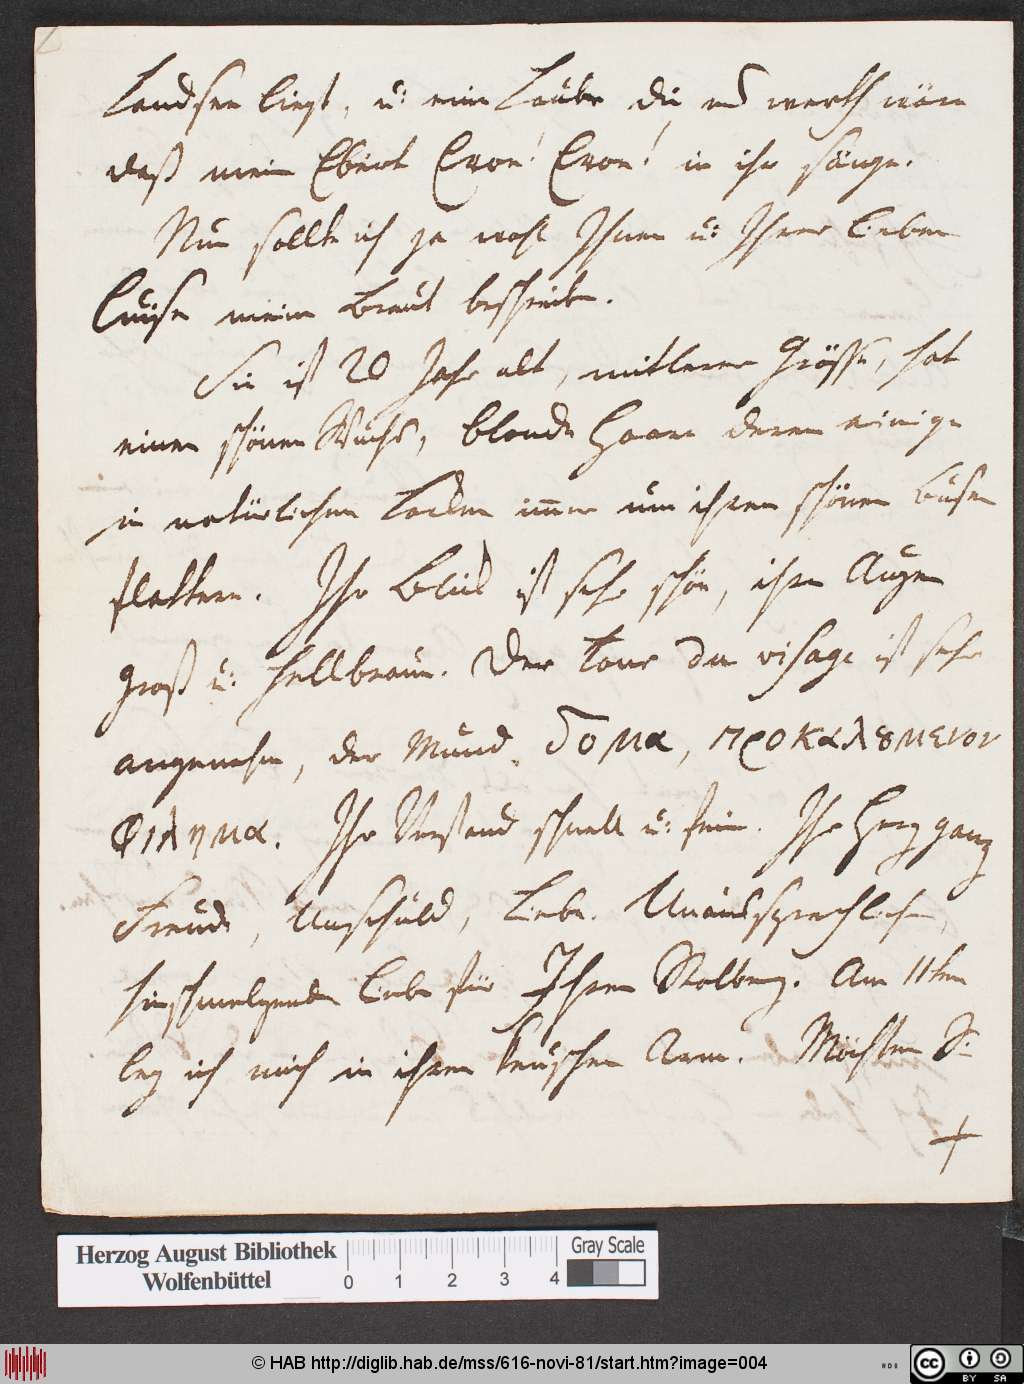 Landsee liegt, u: eine Laube die es werth wäre
daß mein Ebert Evoe! Evoe! in ihr sänge.
Nun sollte ich ja wohl Ihnen u: Ihrer lieben
Luise meine Braut beschreiben.
Sie ist 20 Jahr alt, mittlerer Grösse, hat
einen schönen Wuchs, blonde Haare deren einige
in natürlichen Locken immer um ihren schönen Busen
flattern. Ihr Blick ist sehr schön, ihre Augen
groß u: hellbraun. Der tour du visage ist sehr
angenehm, der Mund, ςομα, προκαλȣμενον
φιλημα. Ihr Verstand schnell u: fein. Ihr Herz ganz
Freude, Unschuld, Liebe. Unaussprechliche,
hinschmelzende Liebe für Ihren Stolberg. Am 11ten
leg ich mich in ihren keuschen Arm. Möchten Si-
Herzog August Bibliothek
Wolfenbüttel
0 1 2 3 4
Gray Scale
© HAB http://diglib.hab.de/mss/616-novi-81/start.htm?image=004
cc BY SA